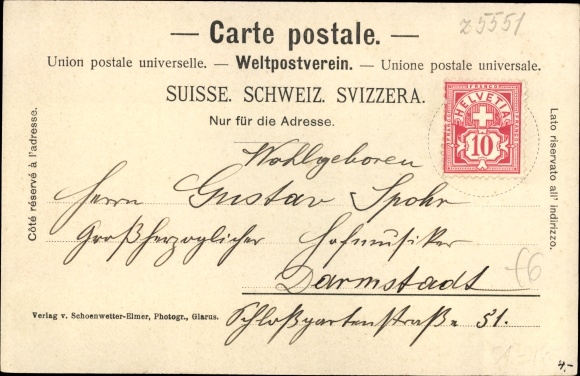 z5551
— Carte postale. —
Union postale universelle. — Weltpostverein. — Unione postale universale.
SUISSE. SCHWEIZ. SVIZZERA.
Nur für die Adresse.
FRANCO
HELVETIA
10
Côté réservé à l'adresse.
Lato riservato all' indirizzo.
Wohlgeboren
Herrn Gustav Spohr
Großherzoglicher Hofmusiker
Darmstadt
f6
Verlag v. Schoenwetter-Elmer, Photogr., Glarus.
Schloßgartenstraße 51.
4.-